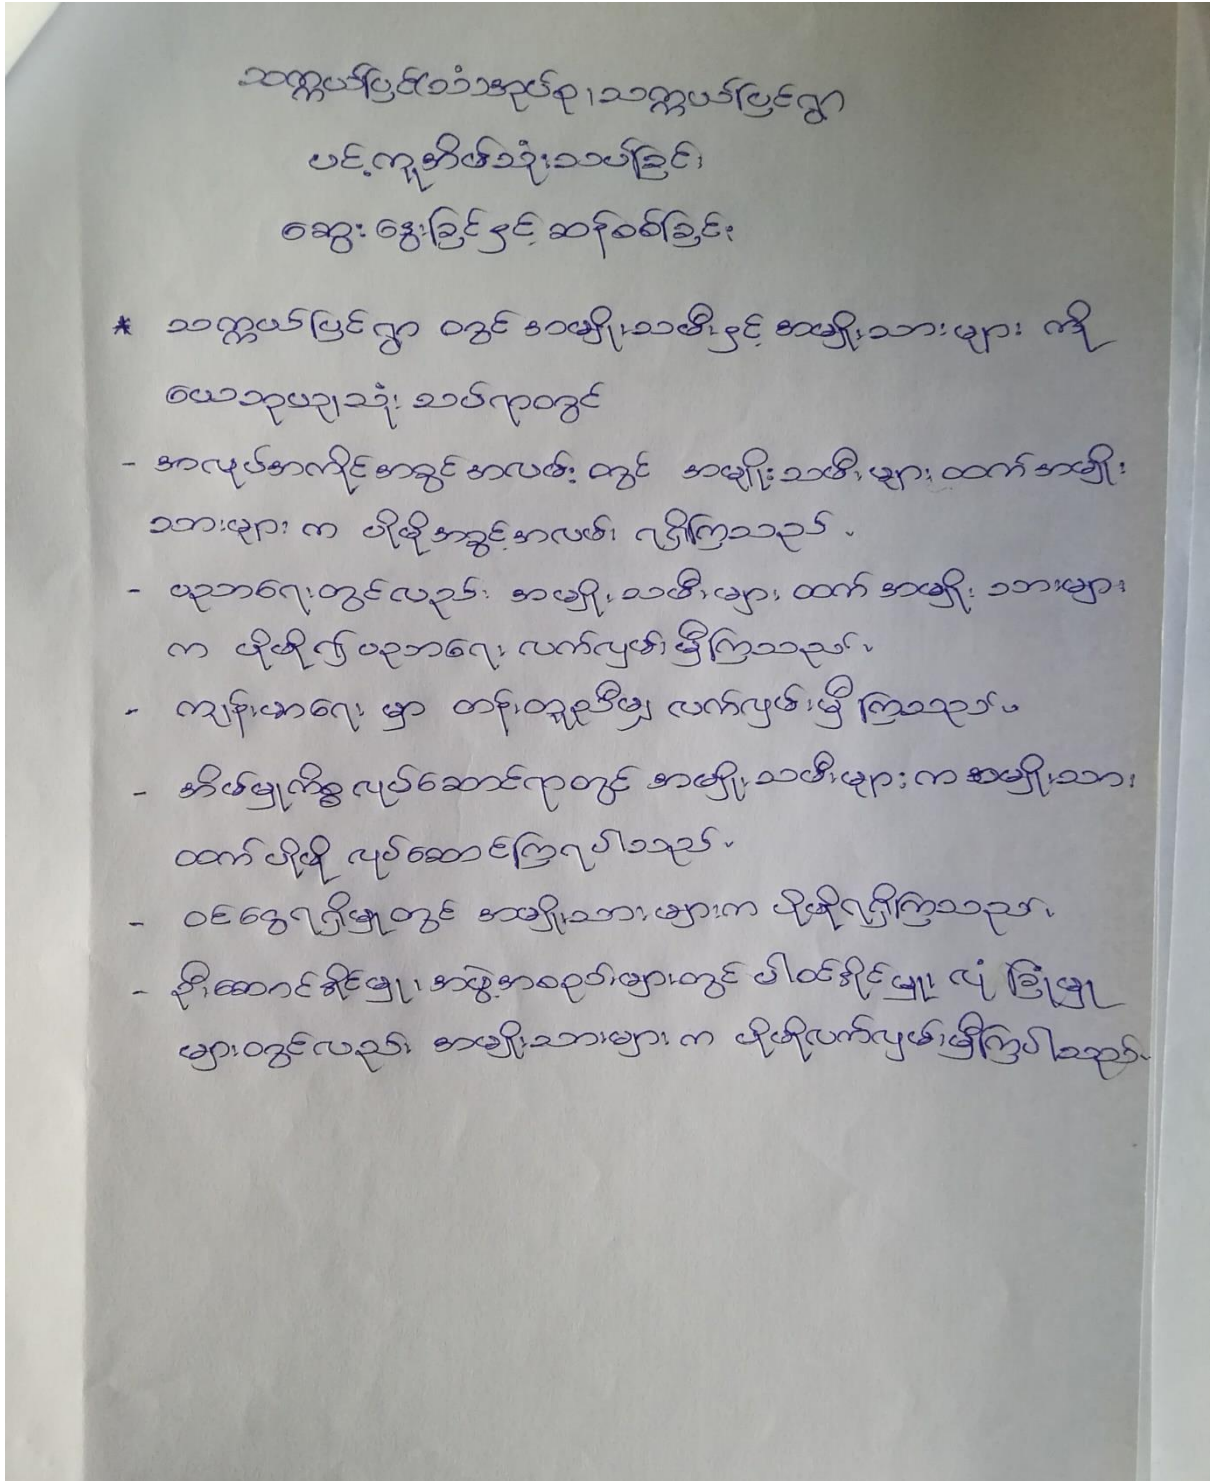 သက္ကယ်ပြင်(သံ)အုပ်စု၊ သက္ကယ်ပြင်ရွာ
ပင့်ကူအိမ်သုံးသပ်ခြင်း
ဆွေးနွေးခြင်နှင့် ဆန်စစ်ခြင်း
* သက္ကယ်ပြင်ရွာ တွင် အမျိုးသမီးနှင့် အမျိုးသားများ ကို
ယေဘုယျသုံး သပ်ရာတွင်
- အလုပ်အကိုင်အခွင်အလမ်း တွင် အမျိုးသမီးများ ထက် အမျိုး
သားများ က ပိုမိုအခွင့်အလမ်း ရရှိကြသည်။
- ပညာရေးတွင်လည်း အမျိုးသမီးများ ထက် အမျိုးသားများ
က ပိုမို၍ ပညာရေး လက်လှမ်းမှီကြသည်။
- ကျန်းမာရေး မှာ တန်းတူညီမျှ လက်လှမ်းမှီ ကြသည်။
- အိမ်မှုကိစ္စ လုပ်ဆောင်ရာတွင် အမျိုးသမီးများက အမျိုးသား
ထက်ပိုမို လုပ်ဆောင်ကြရပါသည်။
- ဝင်ငွေရရှိမှုတွင် အမျိုးသားများက ပိုမိုရရှိကြသည်။
- ဦးဆောင်နိုင်မှု၊ အဖွဲ့အစည်းများတွင် ပါဝင်နိုင်မှု၊ လုံခြုံမှု
များတွင်လည်း အမျိုးသားများ က ပိုမိုလက်လှမ်းမှီကြပါသည်။